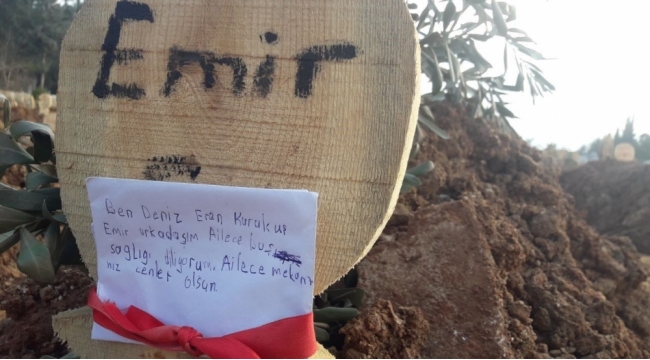 Emir
Ben Deniz Eren Kurukup
Emir arkadaşım Ailece baş
sağlığı diliyorum. Ailece mekanı
nız cenlet olsun